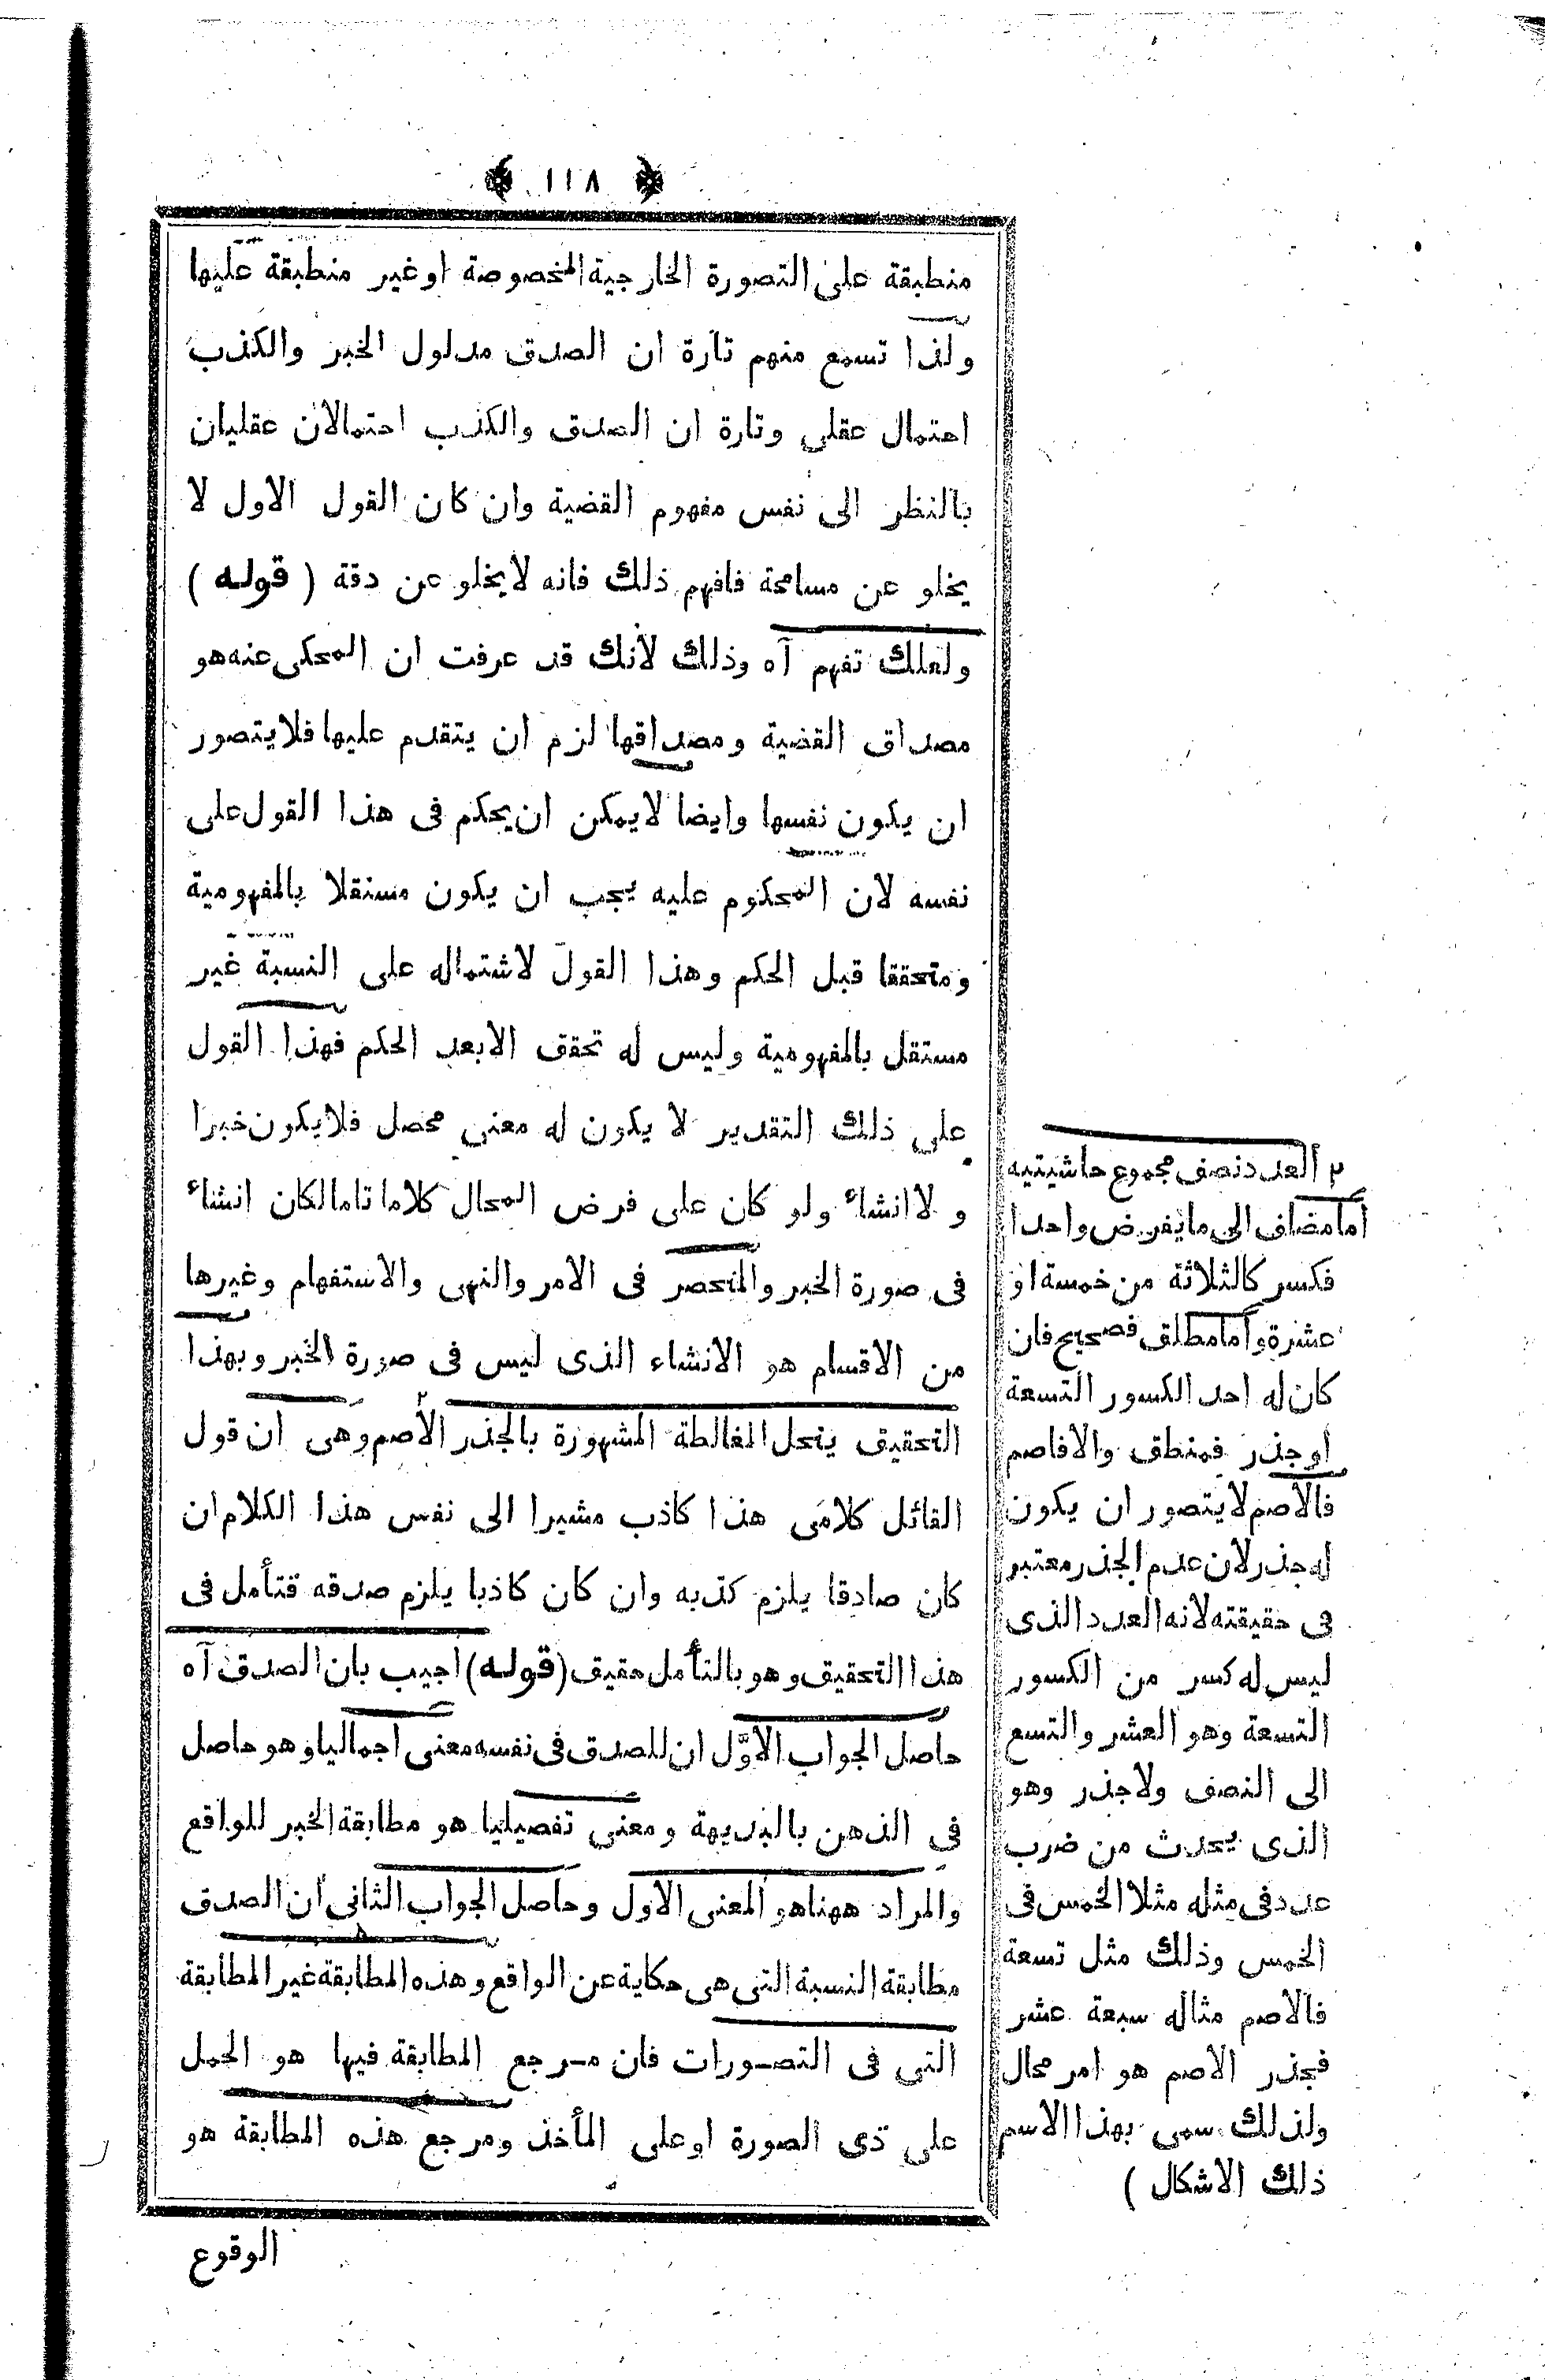 ﴿ ١١٨ ﴾
منطبقة على التصورة الخارجية المخصوصة او غير منطبقة عليها
ولذا تسمع منهم تارة ان الصدق مدلول الخبر والكذب
احتمال عقلى وتارة ان الصدق والكذب احتمالان عقليان
بالنظر الى نفس مفهوم القضية وان كان القول الاول لا
يخلو عن مسامحة فافهم ذلك فانه لا يخلو عن دقة ( قوله )
ولعلك تفهم آه وذلك لأنك قد عرفت ان المحكى عنه هو
مصداق القضية ومصداقها لزم ان يتقدم عليها فلا يتصور
ان يكون نفسها وايضا لا يمكن ان يحكم فى هذا القول على
نفسه لان المحكوم عليه يجب ان يكون مستقلا بالمفهومية
ومتحققا قبل الحكم وهذا القول لاشتماله على النسبة غير
مستقل بالمفهومية وليس له تحقق الا بعد الحكم فهذا القول
على ذلك التقدير لا يكون له معنى محصل فلا يكون خبرا
ولا انشاء ولو كان على فرض المحال كلاما تاما لكان انشاء
فى صورة الخبر والمنحصر فى الامر والنهى والاستفهام وغيرها
من الاقسام هو الانشاء الذى ليس فى صورة الخبر وبهذا
التحقيق ينحل المغالطة المشهورة بالجذر الأصم ٢ وهى ان قول
القائل كلامى هذا كاذب مشيرا الى نفس هذا الكلام ان
كان صادقا يلزم كذبه وان كان كاذبا يلزم صدقه فتأمل فى
هذا التحقيق وهو بالتأمل حقيق (قوله) اجيب بان الصدق آه
حاصل الجواب الاوّل ان للصدق فى نفسه معنى اجماليا وهو حاصل
فى الذهن بالبديهة ومعنى تفصيليا هو مطابقة الخبر للواقع
والمراد ههنا هو المعنى الاول وحاصل الجواب الثانى ان الصدق
مطابقة النسبة التى هى حكاية عن الواقع وهذه المطابقة غير المطابقة
التى فى التصورات فان مرجع المطابقة فيها هو الحمل
على ذى الصورة او على المأخذ ومرجع هذه المطابقة هو
الوقوع
٢ ألعدد نصف مجموع حاشيتيه
أما مضاف الى ما يفرض واحدا
فكسر كالثلاثة من خمسة او
عشرة وأما مطلق فصحيح فان
كان له احد الكسور التسعة
او جذر فمنطق والا فاصم
فالأصم لا يتصور ان يكون
له جذر لان عدم الجذر معتبر
فى حقيقته لانه العدد الذى
ليس له كسر من الكسور
التسعة وهو العشر والتسع
الى النصف ولا جذر وهو
الذى يحدث من ضرب
عدد فى مثله مثلا الخمس فى
الخمس وذلك مثل تسعة
فالاصم مثاله سبعة عشر
فجذر الاصم هو امر محال
ولذلك سمى بهذا الاسم
ذلك الاشكال )